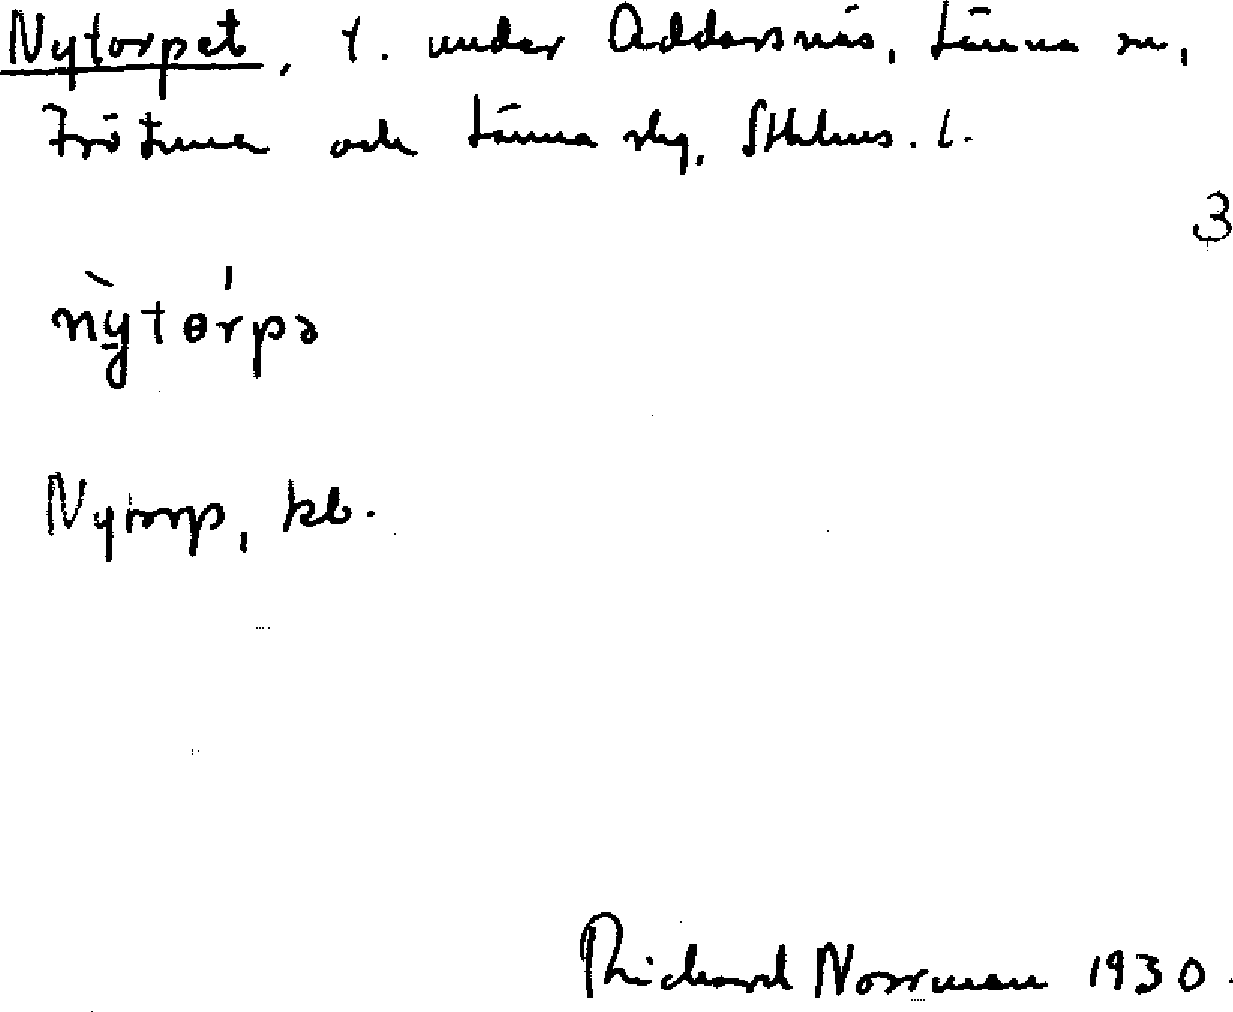 Nytorpet, t. under Addarsnäs, Länna sn,
Frötuna och Länna slg, Sthlms. l.
3
nỳtɵ́rpə
Nytorp, kb.
Richard Norrman 1930.